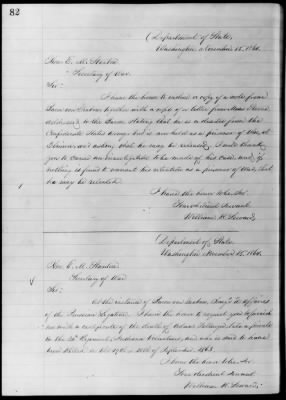 82
Department of State,
Washington, November 15, 1864.
Hon. E. M. Stanton
Secretary of War.
Sir:
I have the honor to enclose a copy of a note from
together with a copy of a letter from
addressed to the stating that he is a deserter from the
Confederate States Army but is now held as a prisoner of War, at
Elmira, and asking that he may be released. I will thank
you to cause an investigation to be made of his case, and if
nothing is found to warrant his detention as a prisoner of War, that
he may be released.
I have the honor to be Sir,
Your obedient Servant
William H. Seward.
Department of State
Washington November 15, 1864.
Hon. E. M. Stanton
Secretary of War
Sir:
At the instance of d'Affaires
of the Prussian Legation, I have the honor to request you to furnish
me with a certificate of the death of late a private
in the Regiment, Indiana Volunteers, and who is said to have
been killed on the 19th or 20th of September 1863.
I have the honor to be Sir
Your obedient Servant
William H. Seward.